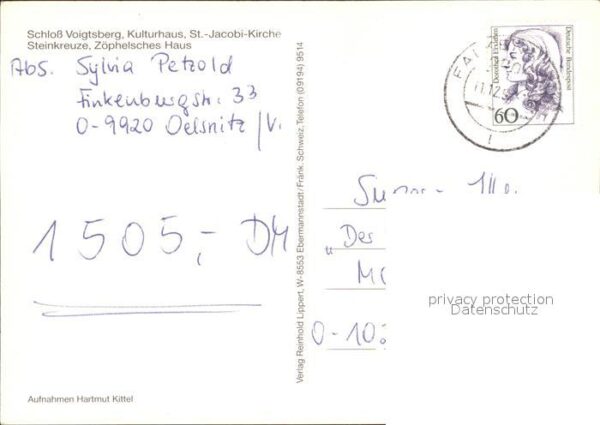 Schloß Voigtsberg, Kulturhaus, St.-Jacobi-Kirche
Steinkreuze, Zöphelsches Haus
Abs. Sylvia Petzold
Finkenburgstr. 33
O-9920 Oelsnitz/V.
1505,- DM
Aufnahmen Hartmut Kittel
Verlag Reinhold Lippert, W-8553 Ebermannstadt/Fränk. Schweiz, Telefon (09194) 9514
Deutsche Bundespost
Dorothea Erxleben
60
"Der
O-10
privacy protection
Datenschutz